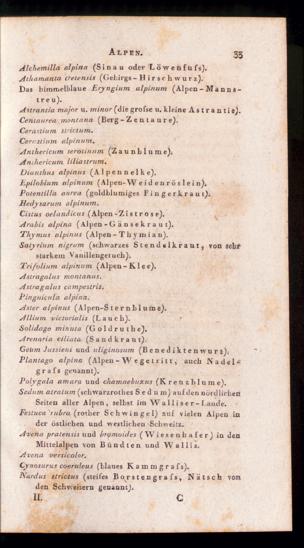 ALPEN. 33
Alchemilla alpina (Sinau oder Löwenfuſs).
Athamanta cretensis (Gebirgs-Hirschwurz).
Das himmelblaue Eryngium alpinum (Alpen-Manns-
treu).
Astrantia major u. minor (die groſse u. kleine Astrantie).
Centaurea montana (Berg-Zentaure).
Cerastium strictum.
Cerastium alpinum.
Anthericum serotinum (Zaunblume).
Anthericum liliastrum.
Dianthus alpinus (Alpennelke).
Epilobium alpinum (Alpen-Weidenröslein).
Potentilla aurea (goldblumiges Fingerkraut).
Hedysarum alpinum.
Cistus oelandicus (Alpen-Zistrose).
Arabis alpina (Alpen-Gänsekraut).
Thymus alpinus (Alpen-Thymian).
Satyrium nigrum (schwarzes Stendelkraut, von sehr
starkem Vanillengeruch).
Trifolium alpinum (Alpen-Klee).
Astragalus montanus.
Astragalus campestris.
Pinguicula alpina.
Aster alpinus (Alpen-Sternblume).
Allium victorialis (Lauch).
Solidago minuta (Goldruthe).
Arenaria ciliata (Sandkraut).
Geum Jussieui und uliginosum (Benediktenwurz).
Plantago alpina (Alpen-Wegetritt, auch Nadel-
graſs genannt).
Polygala amara und chamaebuxus (Kreuzblume).
Sedum atratum (schwarzrothes Sedum) auf den nördlichen
Seiten aller Alpen, selbst im Walliser-Lande.
Festuca rubra (rother Schwingel) auf vielen Alpen in
der östlichen und westlichen Schweitz.
Avena pratensis und bromoides (Wiesenhafer) in den
Mittelalpen von Bündten und Wallis.
Avena versicolor.
Cynosurus coeruleus (blaues Kammgraſs).
Nardus strictus (steifes Borstengraſs, Nätsch von
den Schweitzern genannt).
II. C